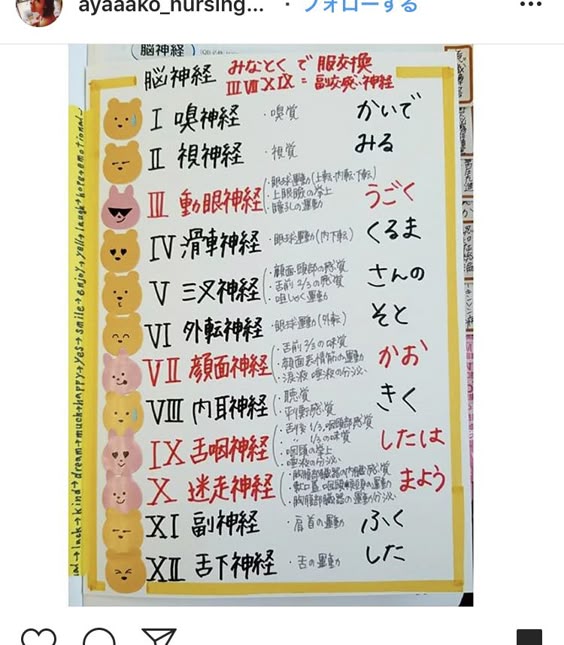 ayaaako_nursing... ・フォローする
脳神経
脳神経 みなとくで 服交換
III VII X IX = 副交感神経
I 嗅神経 ・嗅覚 かいで
II 視神経 ・視覚 みる
III 動眼神経 ・眼球運動(上転・内転・下転) うごく
・上眼瞼の挙上
IV 滑車神経 ・眼球運動(内下転) くるま
V 三叉神経 ・顔面・頭部の感覚 さんの
・舌前2/3の感覚
・咀しゃく運動
VI 外転神経 ・眼球運動(外転) そと
VII 顔面神経 ・舌前2/3の味覚 かお
・顔面表情筋の運動
・涙液・唾液の分泌
VIII 内耳神経 ・聴覚 きく
・平衡感覚
IX 舌咽神経 ・舌後1/3、咽頭部感覚 したは
・〃 1/3の味覚
・咽頭の挙上
・唾液の分泌
X 迷走神経 まよう
XI 副神経 ・肩首の運動 ふく
XII 舌下神経 ・舌の運動 した
luck→kind→dream→much→happy→yes→smile→enjoy→yell→laugh→hope→emotional